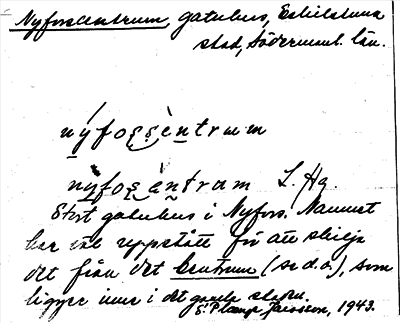 Nyforscentrum, gatuhus, Eskilstuna
stad, Södermanl. län.
nýfoʂʂèntrum
nýfoʂèntrum L. Hq.
Stort gatuhus i Nyfors. Namnet
har väl uppstått för att skilja
det från det Centrum (se d.o.), som
ligger inne i det gamla staden.
Jansson, 1943.